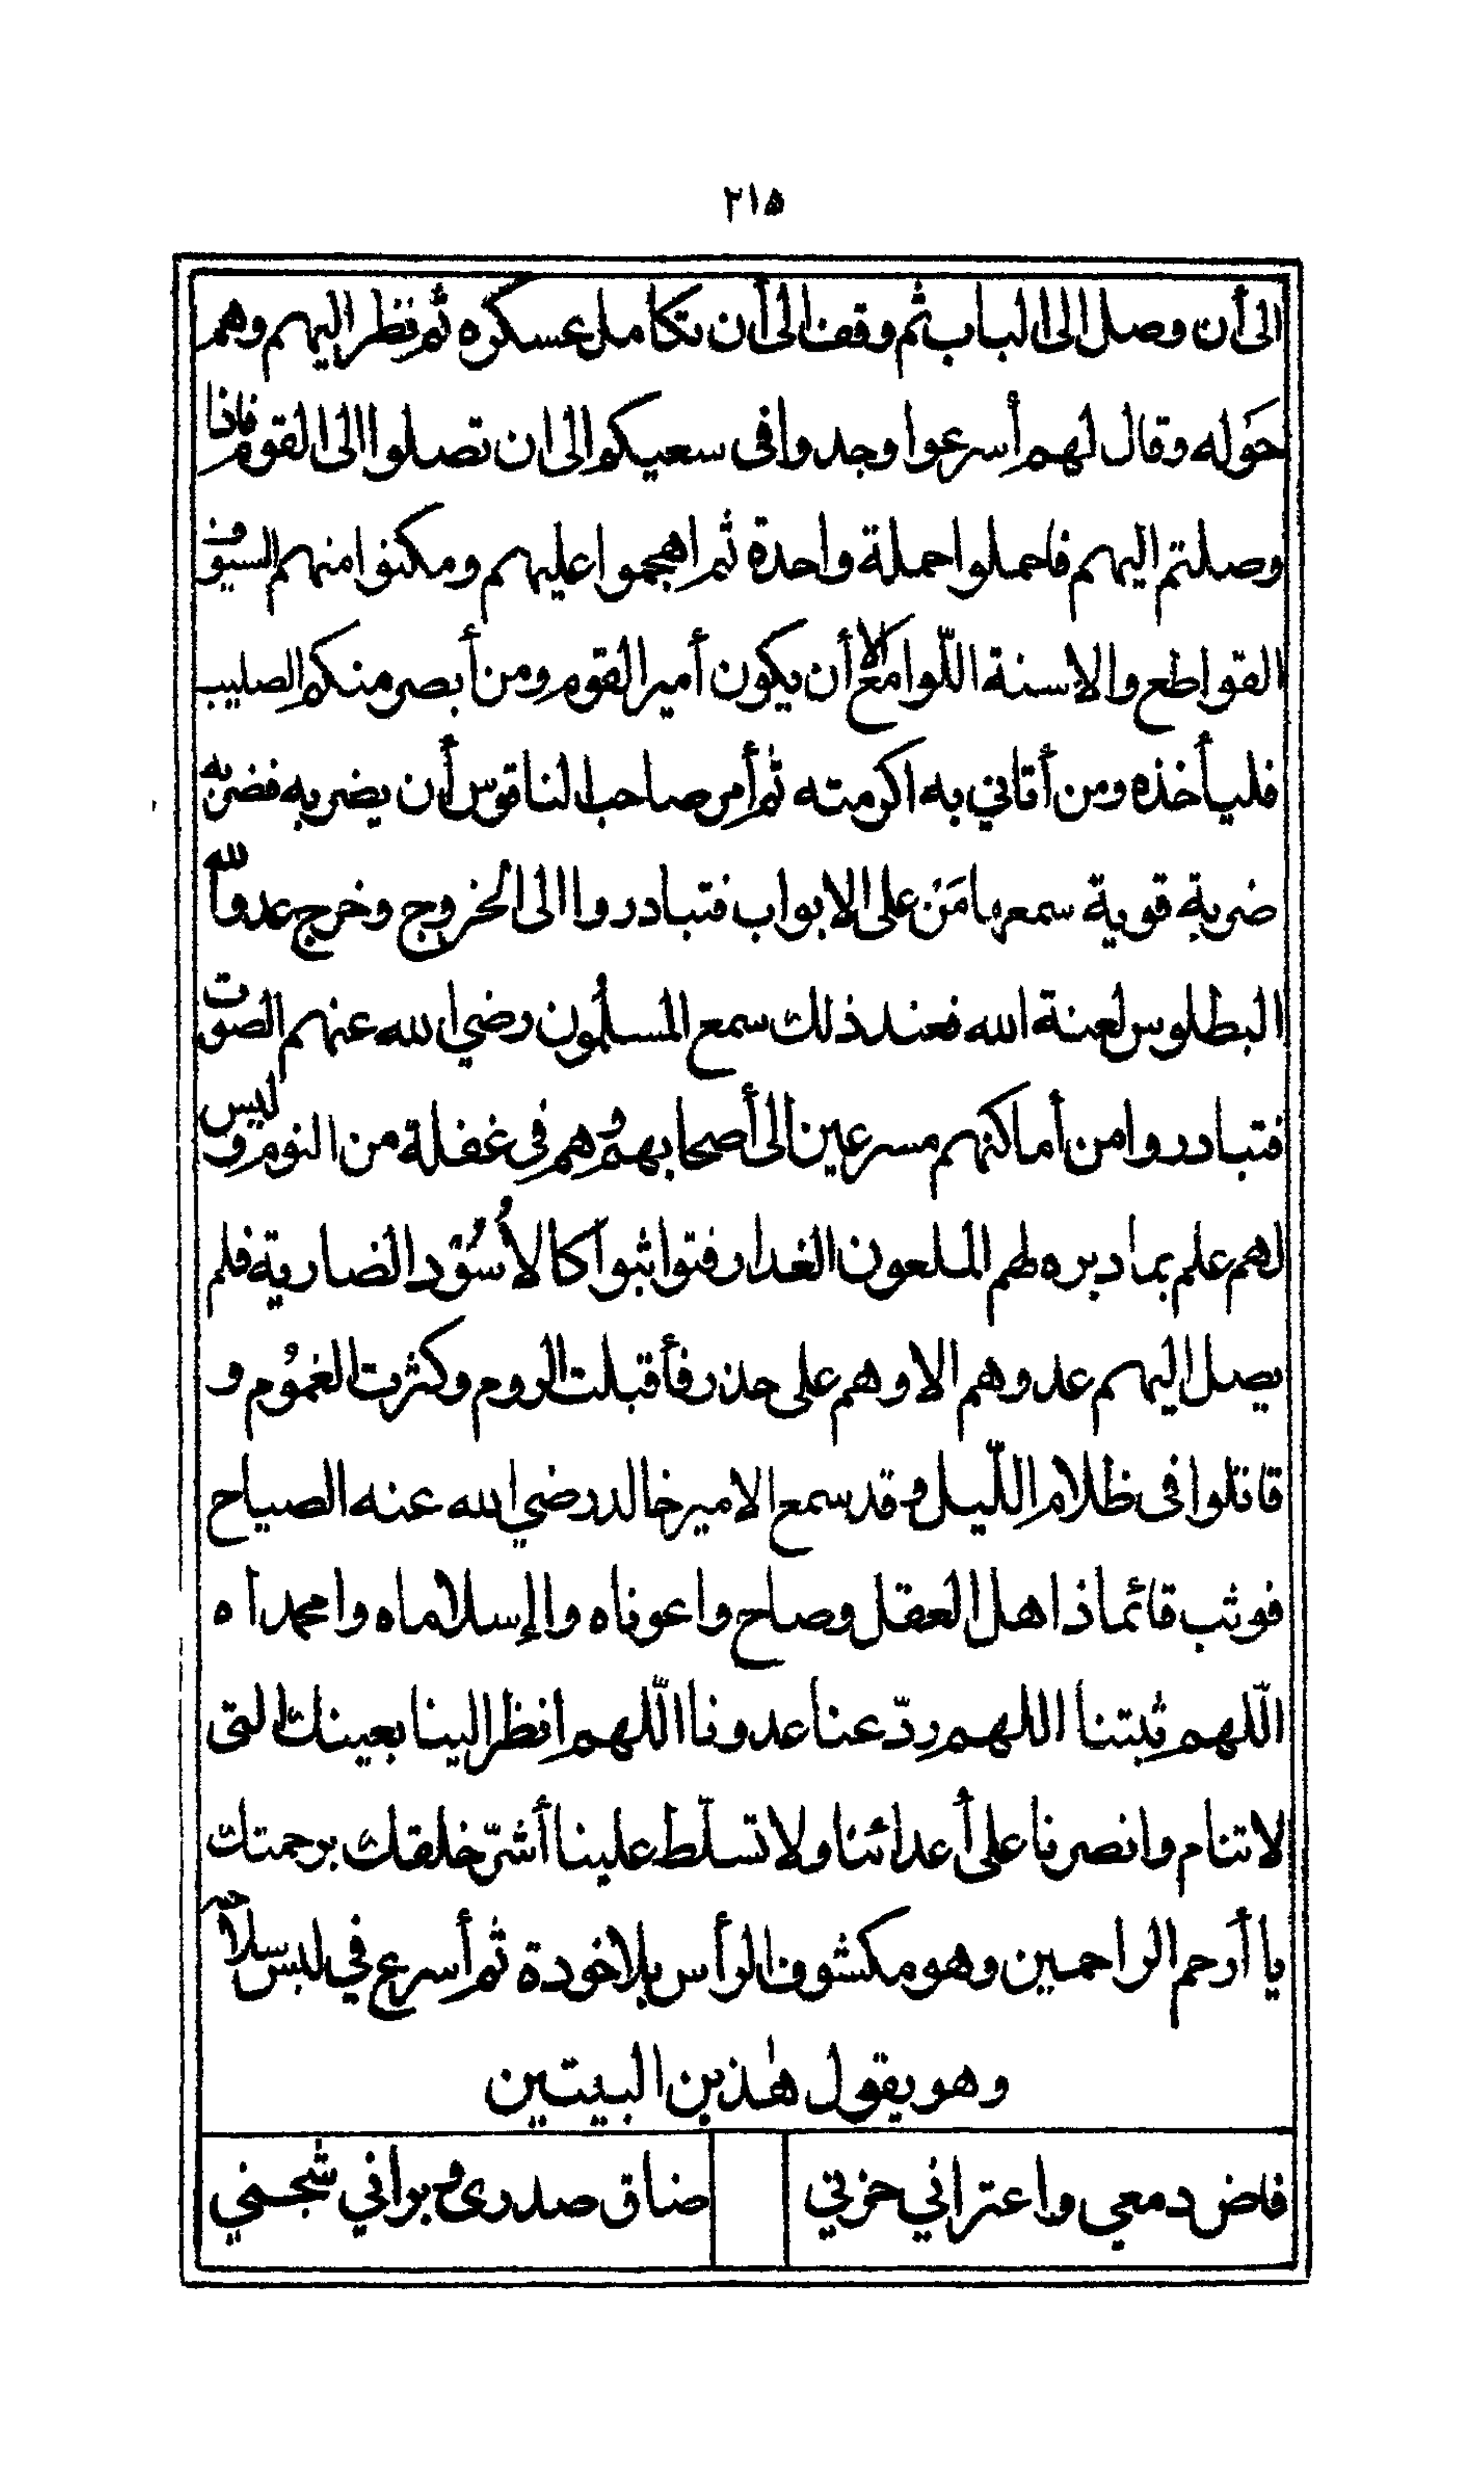 ٢١٥
الى أن وصل الى الباب ثم وقف الى أن تكامل عسكره ثم نظر اليهم وهم
حَوله وقال لهم أسرعوا وجدوا فى سعيكم الى ان تصلوا الى القوم فاذا
وصلتم اليهم فاحملوا حملة واحدة ثم اهجموا عليهم ومكنوا منهم السيوف
القواطع والاسنة اللّوامع الا أن يكون أمير القوم ومن أبصر منكم الصليب
فليأخذه ومن أتاني به اكرمته ثم أمر صاحب الناقوس أن يضربه فضربه
ضربة قوية سمعها مَنْ على الابواب فتبادروا الى الخروج وخرج عدو الله
البطلوس لعنة الله فعند ذلك سمع المسلمون رضي الله عنهم الصوت
فتبادروا من أماكنهم مسرعين الى أصحابهم وهم في غفلة من النوم وليس
لهم علم بما دبره لهم الملعون الغدار فتواثبوا كالأُسُوْد الضارية فلم
يصل اليهم عدوهم الا وهم على حذر فأقبلت الروم وكثرت الغمُوم و
قاتلوا فى ظلام اللّيل وقد سمع الامير خالد رضي الله عنه الصياح
فوثب قائما ذاهل العقل وصاح واعوناه وا إسلاماه وا محمداه
اللّهم ثبتنا اللهم ردّ عنا عدونا اللّهم انظر الينا بعينك التى
لا تنام وانصرنا على أعدائنا ولا تسلّط علينا أشرّ خلقك برحمتك
يا أرحم الراحمين وهو مكشوف الرأس بلا خودة ثم أسرع في لبس سلاحه
وهو يقول هٰذين البيتين
فاض دمعي واعتراني حزني ضاق صدرى وبراني شجني